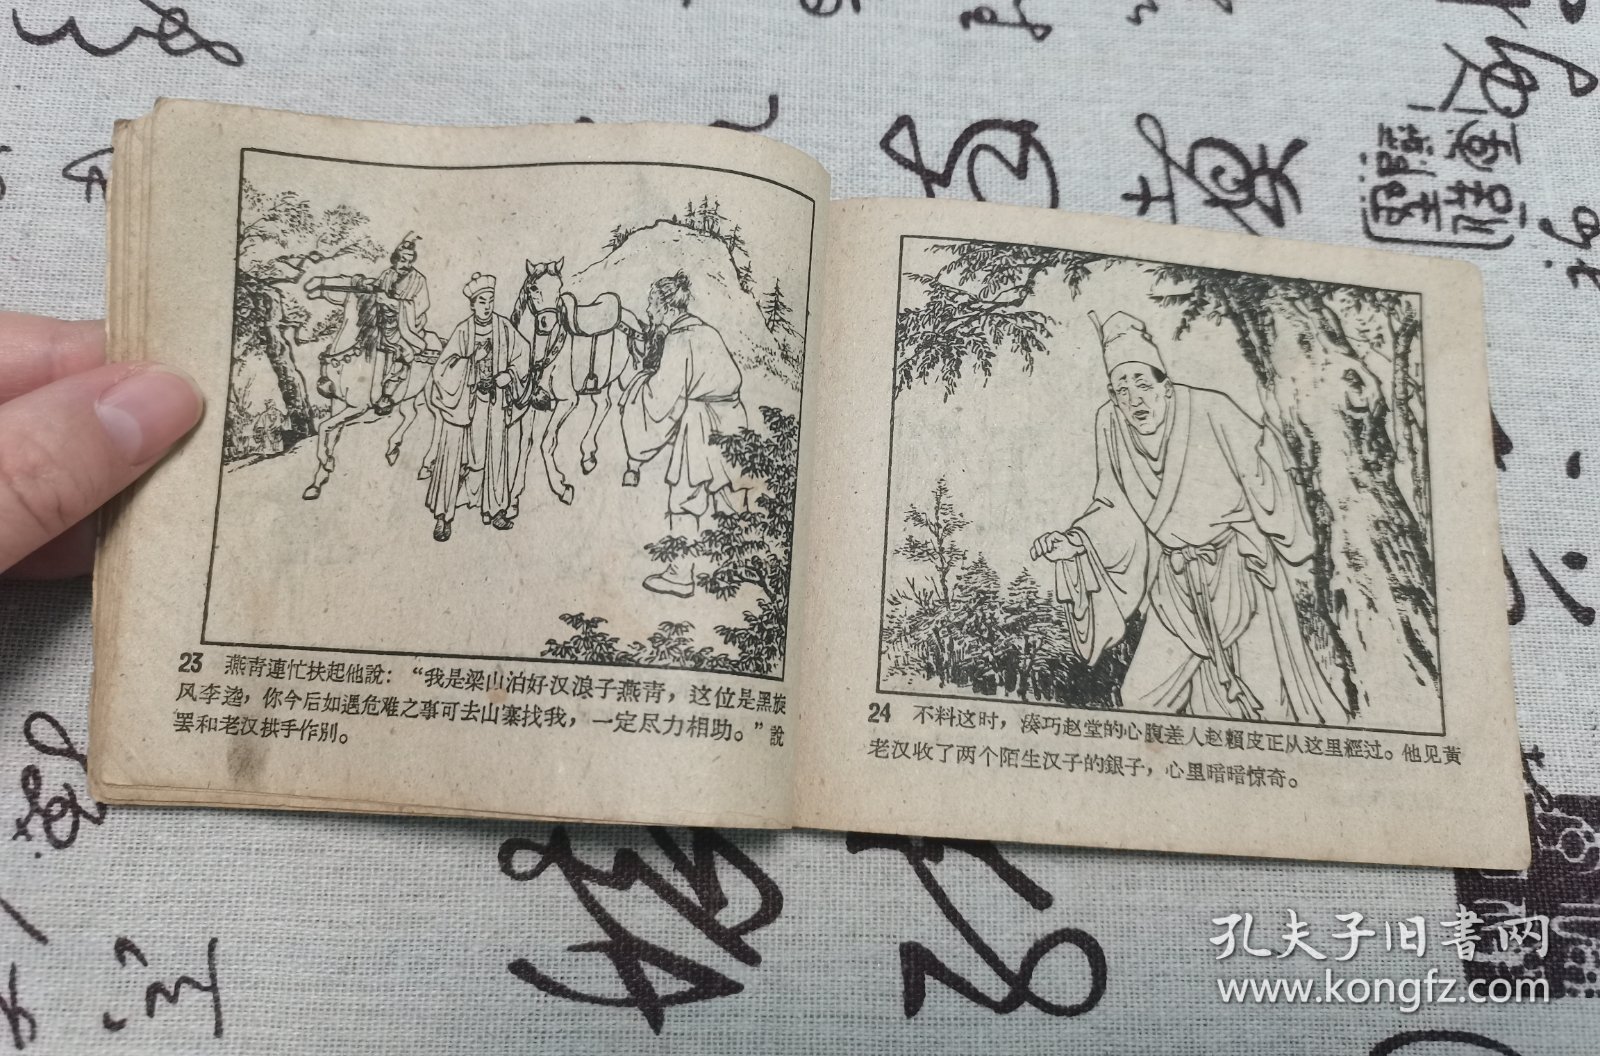 23 燕青連忙扶起他說：“我是梁山泊好汉浪子燕青，这位是黑旋
风李逵，你今后如遇危难之事可去山寨找我，一定尽力相助。”說
罢和老汉拱手作別。
24 不料这时，湊巧赵堂的心腹差人赵賴皮正从这里經过。他见黄
老汉收了两个陌生汉子的銀子，心里暗暗惊奇。
孔夫子旧書网
www.kongfz.com